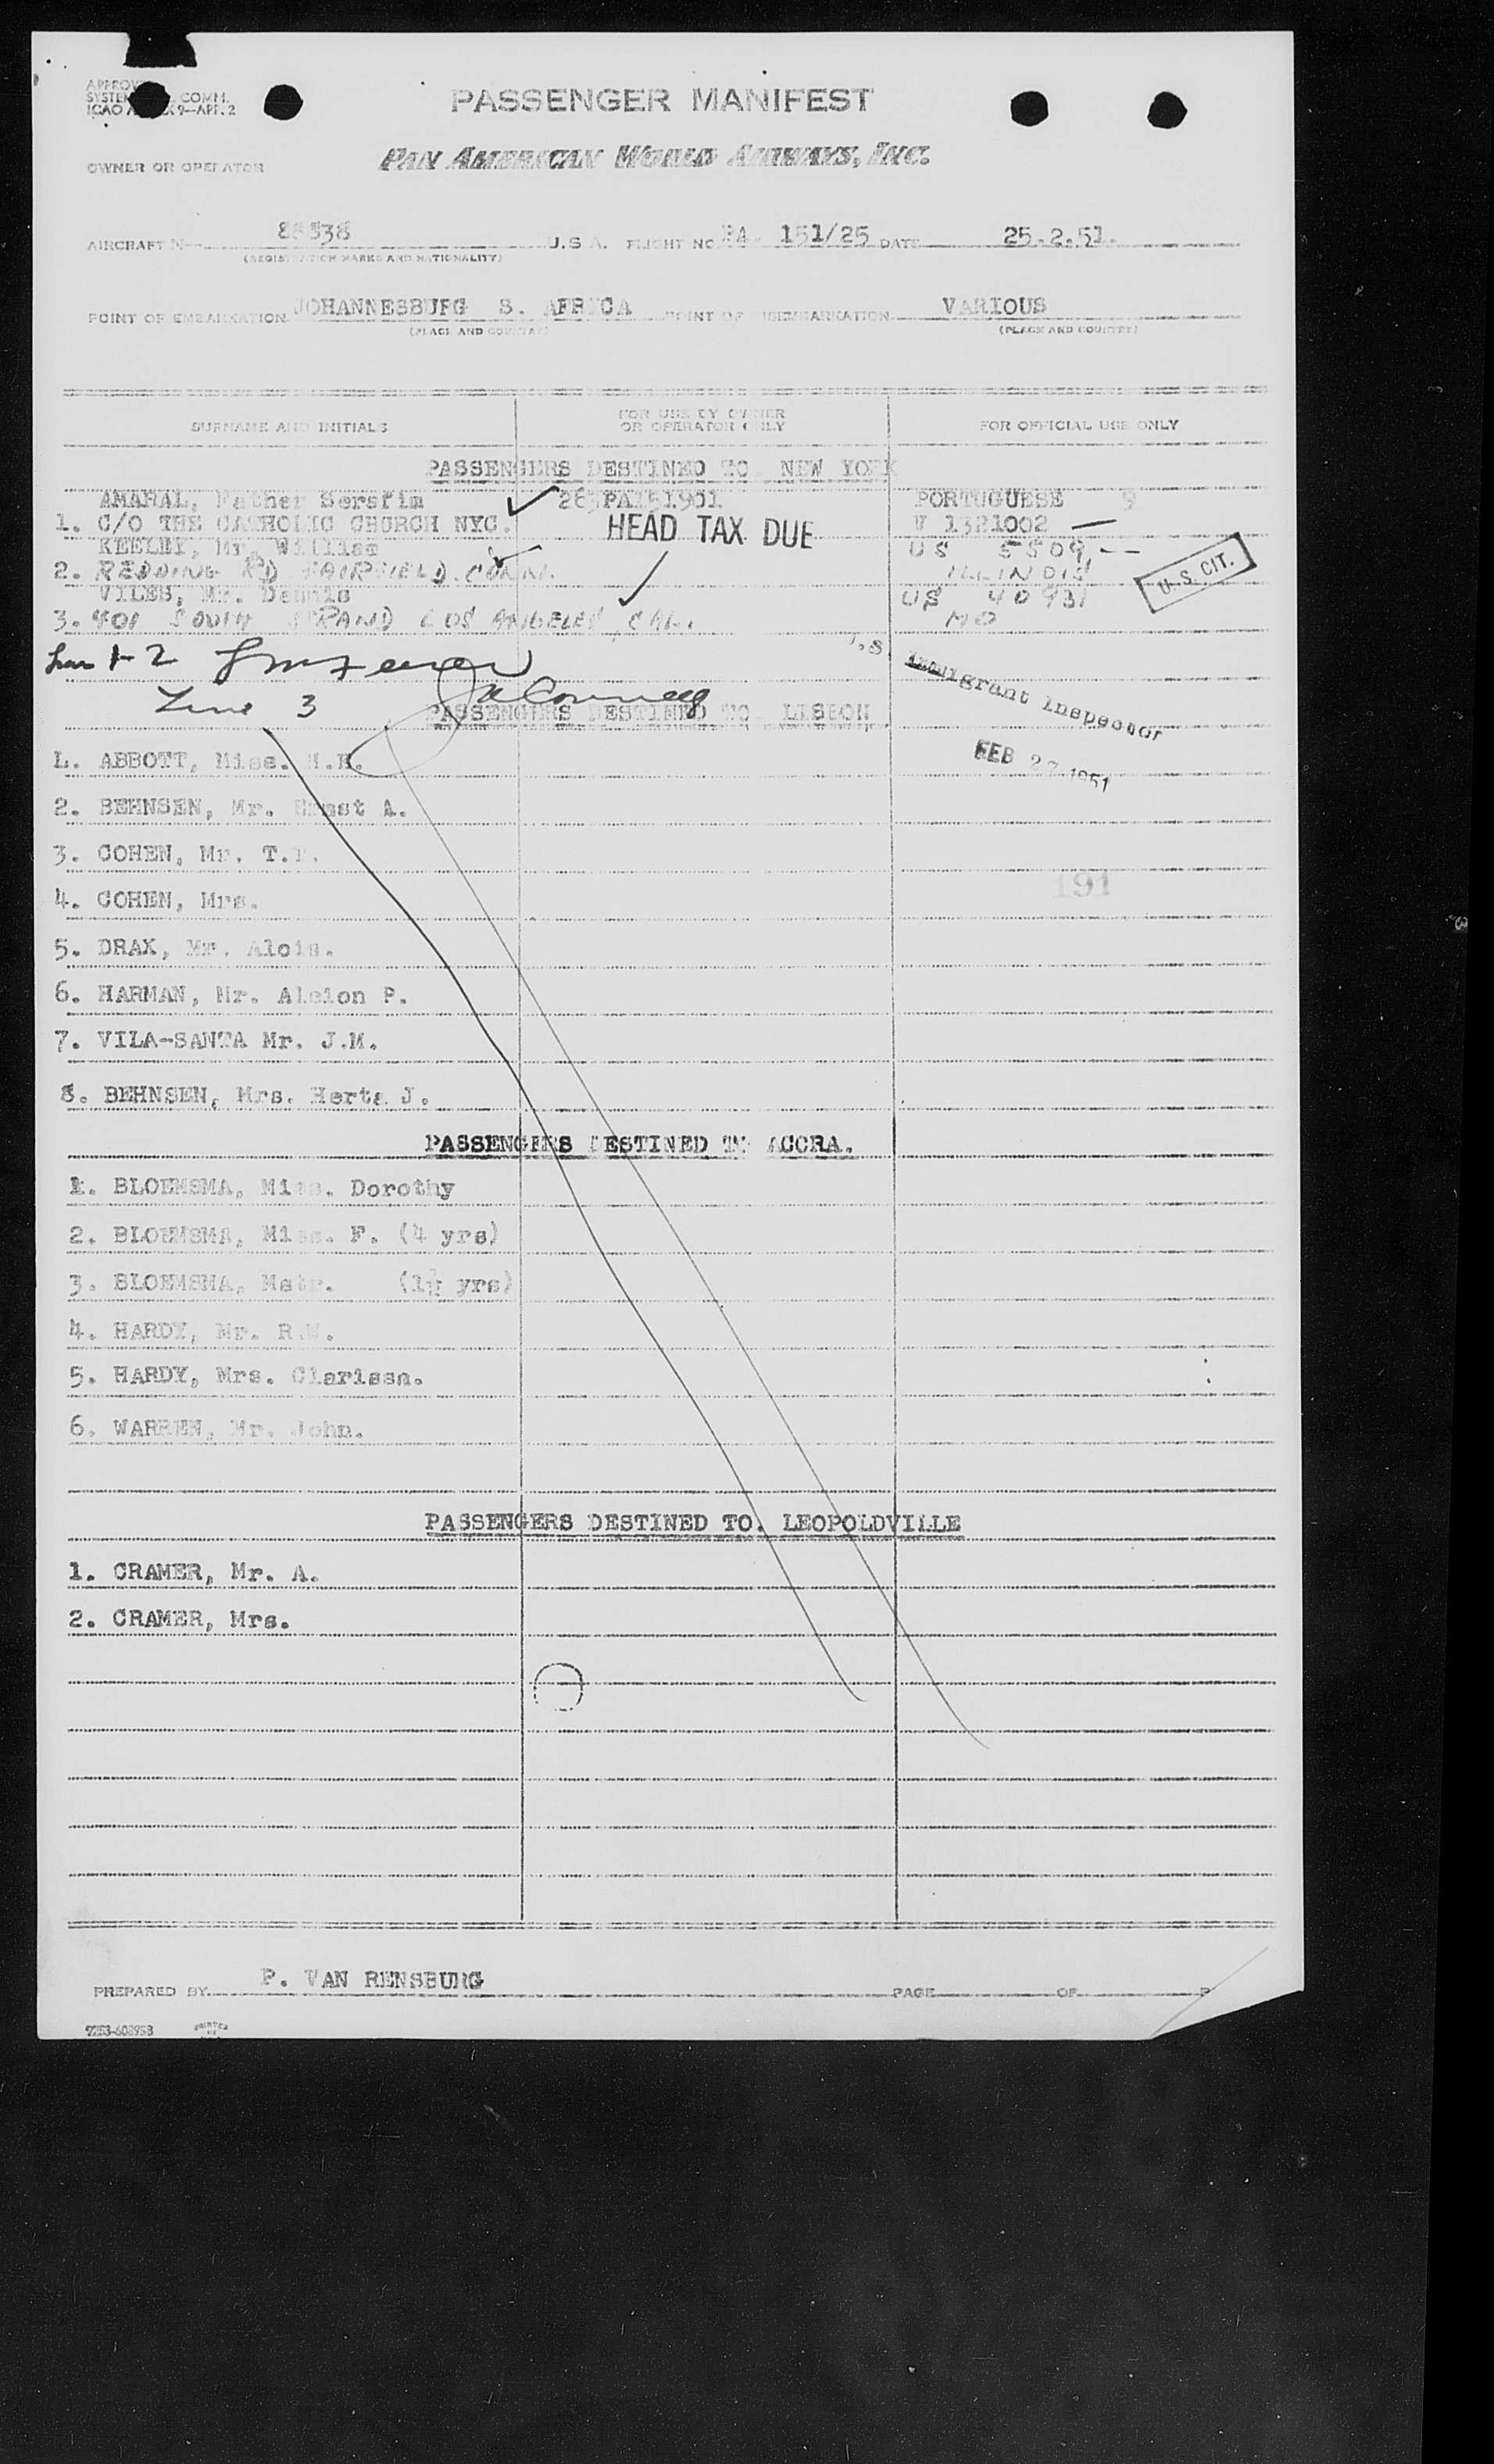 PASSENGER MANIFEST
ICAO 9—APP. 2
OWNER OR OPERATOR PAN AMERICAN WORLD AIRWAYS, INC.
AIRCRAFT N— 88838 U.S.A. FLIGHT NO PA- 151/25 DATE 25.2.51.
(REGISTRATION MARKS AND NATIONALITY)
POINT OF EMBARKATION JOHANNESBURG S. AFRICA POINT OF DISEMBARKATION VARIOUS
(PLACE AND COUNTRY) (PLACE AND COUNTRY)
SURNAME AND INITIALS FOR USE BY OWNER OR OPERATOR ONLY FOR OFFICIAL USE ONLY
PASSENGERS DESTINED TO NEW YORK
AMARAL, Father Serafim 283 PA151901 PORTUGUESE 9
1. C/O THE CATHOLIC CHURCH NYC. HEAD TAX DUE V 1321002 —
KEELEY, Mr. William US 5509 --
2. REDDING RD FAIRFIELD. CONN. ILLINOIS U.S. CIT.
VILES, Mr. Dennis US 40931
3. 401 SOUTH GRAND LOS ANGELES, CAL. MO
1-2
Line 3
U.S. Immigrant Inspector
PASSENGERS DESTINED TO LISBON
FEB 27 1951
1. ABBOTT, Miss. M.H.
2. BEHNSEN, Mr. Ernst A.
3. COHEN, Mr. T.
191
4. COHEN, Mrs.
5. DRAX, Mr. Alois.
6. HARMAN, Mr. Alcion P.
7. VILA-SANTA Mr. J.M.
8. BEHNSEN, Mrs. Herta J.
PASSENGERS DESTINED TO ACCRA.
1. BLOEMSMA, Miss. Dorothy
2. BLOEMSMA, Miss. F. (4 yrs)
3. BLOEMSMA, Mstr. (1½ yrs)
4. HARDY, Mr. R.W.
5. HARDY, Mrs. Clarissa.
6. WARREN, Mr. John.
PASSENGERS DESTINED TO. LEOPOLDVILLE
1. CRAMER, Mr. A.
2. CRAMER, Mrs.
PREPARED BY P. VAN RENSBURG PAGE OF P